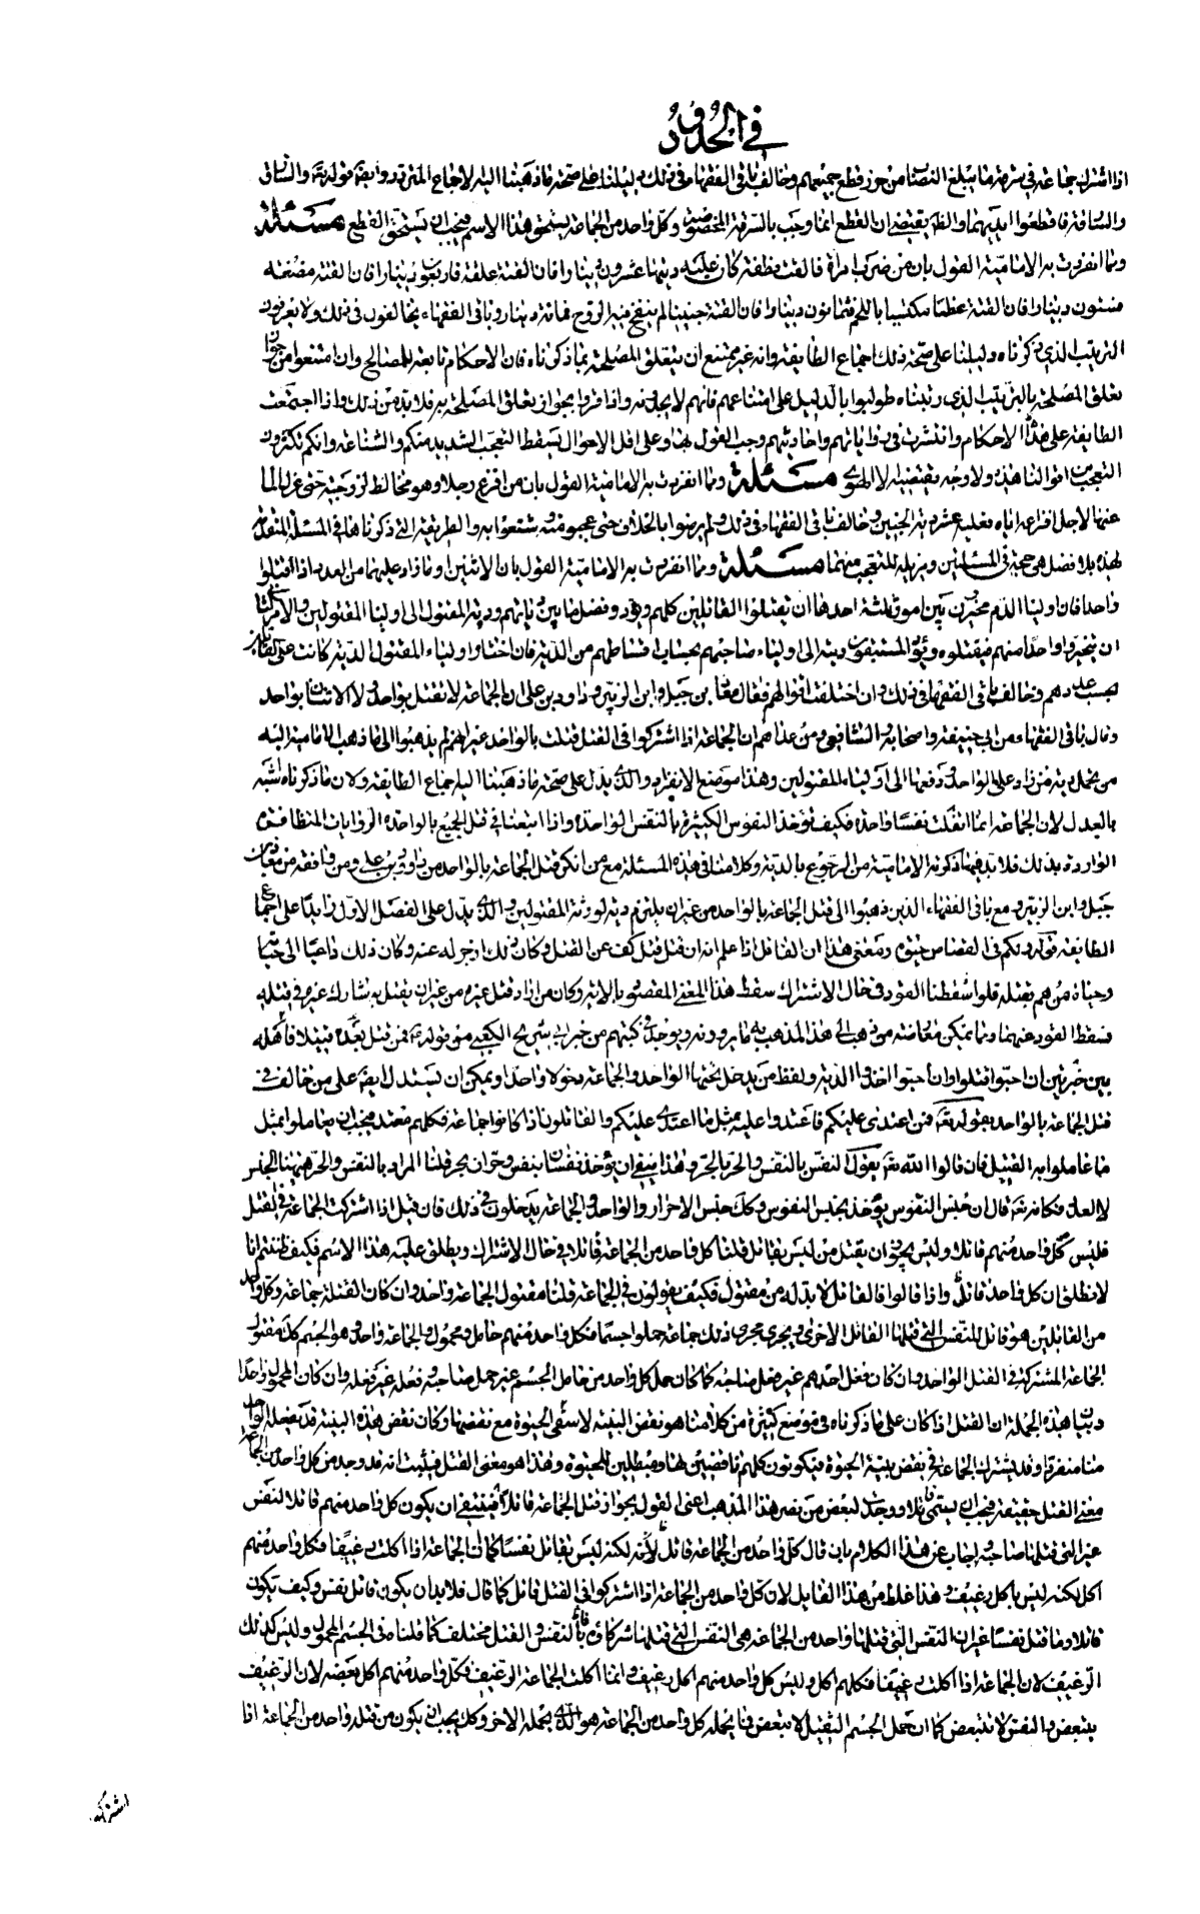 في الحدود
اذا اشترك جماعة في سرقة ما يبلغ النصاب من حرز قطع جميعهم وخالف باقي الفقهاء في ذلك دليلنا على صحة ما ذهبنا اليه الاجماع المتردد وايضا قوله تعالى والسارق
والسارقة فاقطعوا ايديهما والظ يقتضي ان القطع انما وجب بالسرقة المخصوصة وكل واحد من الجماعة يستحق هذا الاسم فيجب ان يستحق القطع مسئلة
ومما انفردت به الامامية القول بان من ضرب امراة فالقت نطفة كان عليه ديتها عشرون دينارا فان القت علقة فاربعون دينارا فان القت مضغة
فستون دينارا فان القت عظما مكتسيا باللحم فثمانون دينارا فان القت جنينا لم ينفخ فيه الروح فمائة دينار وباقي الفقهاء يخالفون في ذلك ولا يعرفون
الترتيب الذي ذكرناه دليلنا على صحة ذلك اجماع الطايفة وانه غير ممتنع ان يتعلق المصلحة بما ذكرناه فان الاحكام تابعة للمصالح وان امتنعوا من جواز
تعلق المصلحة بالترتيب الذي رتبناه طولبوا بالدليل على امتناعهم فانهم لا يجدونه واذا اقروا بجواز تعلق المصلحة به فلا بد من ذلك واذا اجتمعت
الطايفة على هذه الاحكام وانتشرت في رواياتهم واحاديثهم وجب القول بها وعلى اقل الاحوال يسقط التعجب الشديد منكم والشناعة وانكم تكثرون
التعجب من اقوالنا هذه ولا وجه يقتضيه الا الهوى مسئلة ومما انفردت به الامامية القول بان من افزع رجلا وهو مخالط لزوجته حتى عزل الماء
عنها لاجل افزاعه اياه فعليه عشر دية الجنين وخالف باقي الفقهاء في ذلك ولم يرضوا بالخلاف حتى عجبوا منه وشنعوا به والطريقة التي ذكرناها في المسئلة المتقدمة
لهذه بلا فصل هي حجة في المسئلتين ومزيلة للتعجب منهما مسئلة ومما انفردت به الامامية القول بان الاثنين او ما زاد عليهما من العدد اذا قتلوا
واحدا فان اولياء الدم مخيرون بين امور ثلثة احدها ان يقتلوا القاتلين كلهم ويؤدوا فضل ما بين دياتهم ودية المقتول الى اولياء المقتولين والامر الثاني
ان يتخيروا واحدا منهم فيقتلوه ويؤدي المستبقون ديته الى اولياء صاحبهم بحساب اقساطهم من الدية فان اختار اولياء المقتول الدية كانت على القاتلين
بحسب عددهم وخالف باقي الفقهاء في ذلك وان اختلفت اقوالهم فقال معاذ بن جبل وابن الزبير وداود بن علي ان الجماعة لا تقتل بواحد ولا الاثنان بواحد
وقال باقي الفقهاء من ابي حنيفة واصحابه والشافعي ومن عداهم ان الجماعة اذا اشتركوا في القتل قتلت بالواحد غير انهم لم يذهبوا الى ما ذهب الامامية اليه
من تحمل دية من زاد على الواحد ودفعها الى اولياء المقتولين وهذا موضع الانفراد والذي يدل على صحة ما ذهبنا اليه اجماع الطايفة ولان ما ذكرناه اشبه
بالعدل لان الجماعة انما اتلفت نفسا واحدة فكيف تؤخذ النفوس الكثيرة بالنفس الواحدة واذا اتبعنا في قتل الجميع بالواحد الروايات المتظافرة
الواردة بذلك فلا بد فيما ذكرته الامامية من الرجوع بالدية وكلامنا في هذه المسئلة مع من انكر قتل الجماعة بالواحد من داود بن علي ومن وافقه من معاذ بن
جبل وابن الزبير ومع باقي الفقهاء الذين ذهبوا الى قتل الجماعة بالواحد من غير ان يلتزم دية لورثة المقتولين والذي يدل على الفصل الاول زايدا على اجماع
الطايفة قوله تعالى ولكم في القصاص حيوة ومعنى هذا ان القاتل اذا علم انه ان قتل قتل كف عن القتل وكان ذلك ازجر له عنه وكان ذلك داعيا الى حياته
وحياة من هم بقتله فلو اسقطنا القود في حال الاشتراك سقط هذا المعنى المقصود بالاية وكان من اراد قتل غيره من غير ان يقتل به شارك غيره في قتله
فسقط القود عنهما ومما يمكن معارضة من ذهب الى هذا المذهب به ما يروونه ويوجد في كتبهم من خبر ابي شريح الكعبي من قوله ع فمن قتل بعده قتيلا فاهله
بين خيرتين ان احبوا قتلوا وان احبوا اخذوا الدية ولفظ من يدخل تحتها الواحد والجماعة دخولا واحدا ويمكن ان يستدل ايضا على من خالف في
قتل الجماعة بالواحد بقوله تعالى فمن اعتدى عليكم فاعتدوا عليه بمثل ما اعتدى عليكم والقاتلون اذا كانوا جماعة فكلهم معتد فيجب ان يعاملوا بمثل
ما عاملوا به القتيل فان قالوا الله تعالى يقول النفس بالنفس والحر بالحر وهذا ينفي ان يؤخذ نفسان بنفس وحران بحر قلنا المراد بالنفس والحر ههنا الجنس
لا العدد فكانه تعالى قال ان جنس النفوس يؤخذ بجنس النفوس وكك جنس الاحرار والواحد والجماعة يدخلون في ذلك فان قيل اذا اشتركت الجماعة في القتل
فليس كل واحد منهم قاتلا وليس يجوز ان يقتل من ليس بقاتل قلنا كل واحد من الجماعة قاتلا في حال الاشتراك ويطلق عليه هذا الاسم فكيف ظننتم انا
لا نطلق ان كل واحد قاتل واذا قالوا فالقاتل لا بد له من مقتول فكيف يقولون في الجماعة قلنا مقتول الجماعة واحد وان كان القتلة جماعة وكل واحد
من القاتلين هو قاتل للنفس التي قتلها القاتل الاخر ويجري مجرى ذلك جماعة حملوا جسما فكل واحد منهم حامل ومحمول الجماعة واحد وهو الجسم كك مقتول
الجماعة المشتركة في القتل الواحد وان كان فعل احدهم غير فعل صاحبه كما كان حمل كل واحد من حامل الجسم غير حمل صاحبه وفعله غير فعله وان كان المحمول واحدا
وبيان هذه الجملة ان القتل اذا كان على ما ذكرناه في مواضع كثيرة من كلامنا هو نقض البنية لا تبقى الحيوة مع نقضها وكان نقض هذه البنية قد يفعله الواحد
منا منفردا وقد يشترك الجماعة في نقض بنية الحيوة فيكونون كلهم ناقضين لها ومبطلين للحيوة وهذا هو معنى القتل فيثبت انه قد وجد من كل واحد من الجماعة
معنى القتل حقيقة فيجب ان يسمى قاتلا ووجدت لبعض من نصر هذا المذهب اعني القول بجواز قتل الجماعة قائلا فينبغي ان يكون كل واحد منهم قاتلا لنفس
غير التي قتلها صاحبه واجاب عن هذا الكلام بان قال كل واحد من الجماعة قاتل الا انه لكنه ليس بقاتل نفسا كما ان الجماعة اذا اكلت رغيفا فكل واحد منهم
اكل لكنه ليس باكل رغيف وهذا غلط من هذا القايل لان كل واحد من الجماعة اذا اشتركوا في القتل قاتل كما قال فلا بد ان يكون قاتل نفس وكيف يكون
قاتلا وما قتل نفسا غير ان النفس التي قتلها واحد من الجماعة هي النفس التي قتلها شركاؤه والنفس والقتل مختلف كما قلنا في الجسم المحمول وليس كذلك
الرغيف لان الجماعة اذا اكلت رغيفا فكلهم اكل وليس كل واحد منهم اكل رغيف وانما اكلت الجماعة الرغيف فكل واحد منهم اكل بعضه لان الرغيف
يتبعض والنفس لا تتبعض كما ان حمل الجسم الثقيل لا يتبعض فما يحمله كل واحد من الجماعة هو الذي يحمله الاخر وكك يجب ان يكون من قتله واحد من الجماعة اذا
اشتركوا